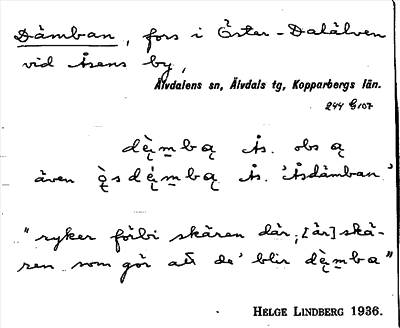 Dämban, fors i Öster-Dalälven
vid Åsens by,
Älvdalens sn, Älvdals tg, Kopparbergs län.
244 G107
dę̀m̥bą Ås. obs ą
även ǫ̀sdę̀m̥bą Ås. 'Åsdämban.'
"ryker förbi skären där, [är] skä-
ren som gör att de' blir dę̀m̥ba"
HELGE LINDBERG 1936.